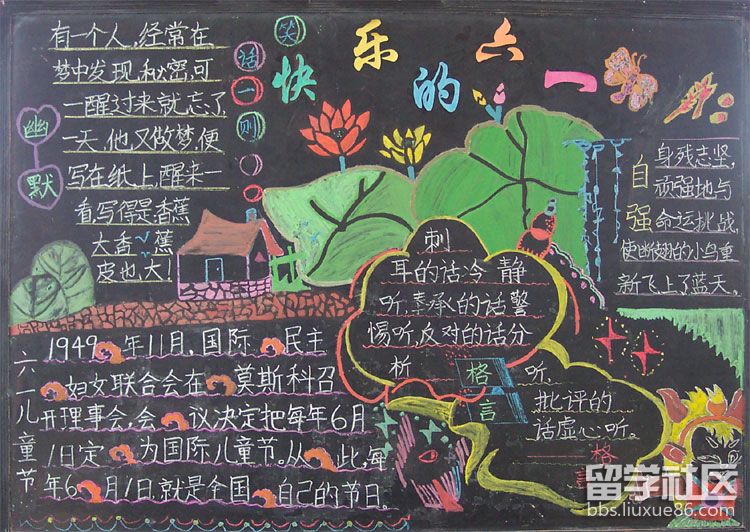 快乐的六一
笑话一则
幽默
有一个人,经常在
梦中发现秘密,可
一醒过来就忘了
一天,他又做梦,便
写在纸上,醒来一
看,写得是香蕉
大香蕉
皮也大!
自强
身残志坚,
顽强地与
命运挑战,
使断翅的小鸟重
新飞上了蓝天。
刺
耳的话冷静
听,奉承的话警
惕听,反对的话分
析听,
批评的
话虚心听。
格言
格言
六一儿童节
1949年11月,国际民主
妇女联合会在莫斯科召
开理事会,会议决定把每年6月
1日定为国际儿童节。从此,每
年6月1日,就是全国自己的节日。
留学社区
bbs.liuxue86.com